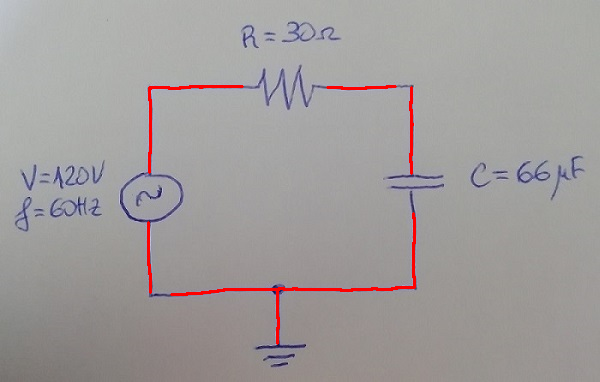 R = 30Ω
V=120V
f=60HZ
C = 66 μF